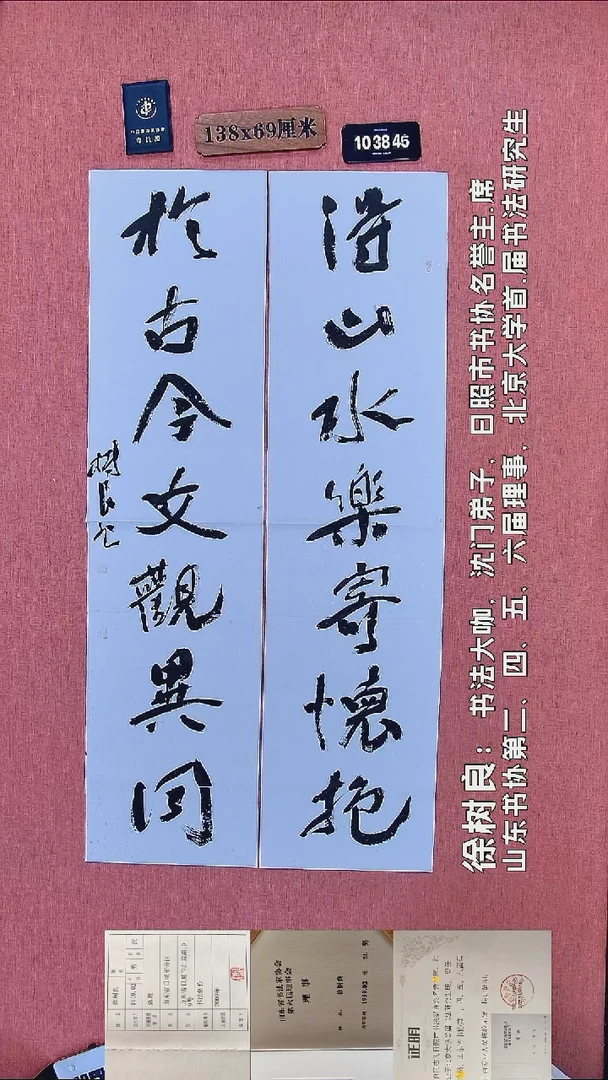 138x69厘米
10 38 45
得山水樂寄懷抱
於古今文觀異同
樹良书
徐树良：书法大咖、沈门弟子、日照市书协名誉主席
山东书协第二、四、五、六届理事、北京大学首届书法研究生
山东省书法家协会
第六届理事会
理事
证明